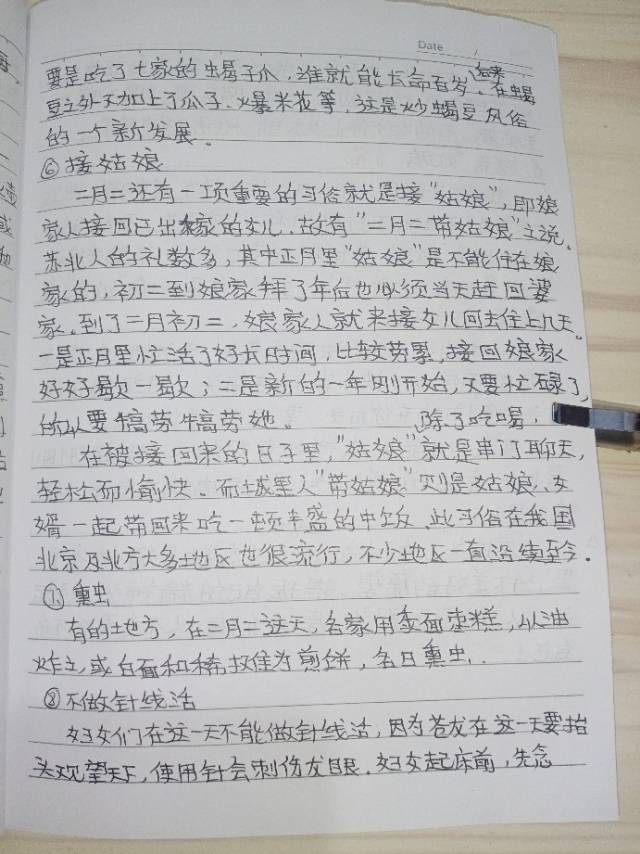 Date /
要是吃了七家的蝎子爪，谁就能长命百岁。在蝎
豆之外又加上了瓜子、爆米花等，这是炒蝎豆风俗
的一个新发展。
⑥接姑娘
二月二还有一项重要的习俗就是接“姑娘”，即娘
家人接回已出嫁的女儿，故有“二月二带姑娘”之说。
苏北人的礼数多，其中正月里“姑娘”是不能住在娘
家的，初二到娘家拜了年后也必须当天赶回婆
家。到了二月初二，娘家人就来接女儿回去住上几天。
一是正月里忙活了好长时间，比较劳累，接回娘家
好好歇一歇；二是新的一年刚开始，又要忙碌了，
所以要犒劳犒劳她。
除了吃喝，
在被接回来的日子里，“姑娘”就是串门聊天，
轻松而愉快。而城里人“带姑娘”则是姑娘、女
婿一起带回来吃一顿丰盛的中饭，此习俗在我国
北京及北方大多地区也很流行，不少地区一直沿续至今。
⑦熏虫
有的地方，在二月二这天，各家用黍面枣糕，以油
炸之，或白面和稀摊为煎饼，名曰熏虫。
⑧不做针线活
妇女们在这一天不能做针线活，因为苍龙在这一天要抬
头观望天下，使用针会刺伤龙眼。妇女起床前，先念